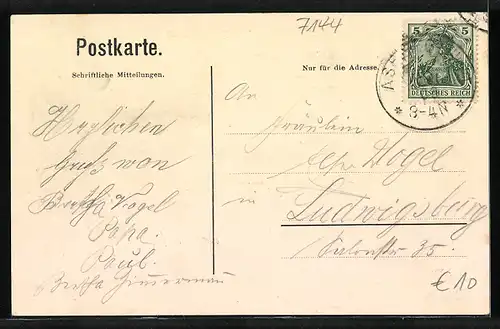 7144
Postkarte.
Schriftliche Mitteilungen.
Nur für die Adresse.
5 5
DEUTSCHES REICH
8-4N
Herzlichen
Gruß von
Bertha Vogel
Papa.
Paul.
Bertha Zimmermann
An
Fräulein
Vogel
in
Ludwigsburg
35.
€10